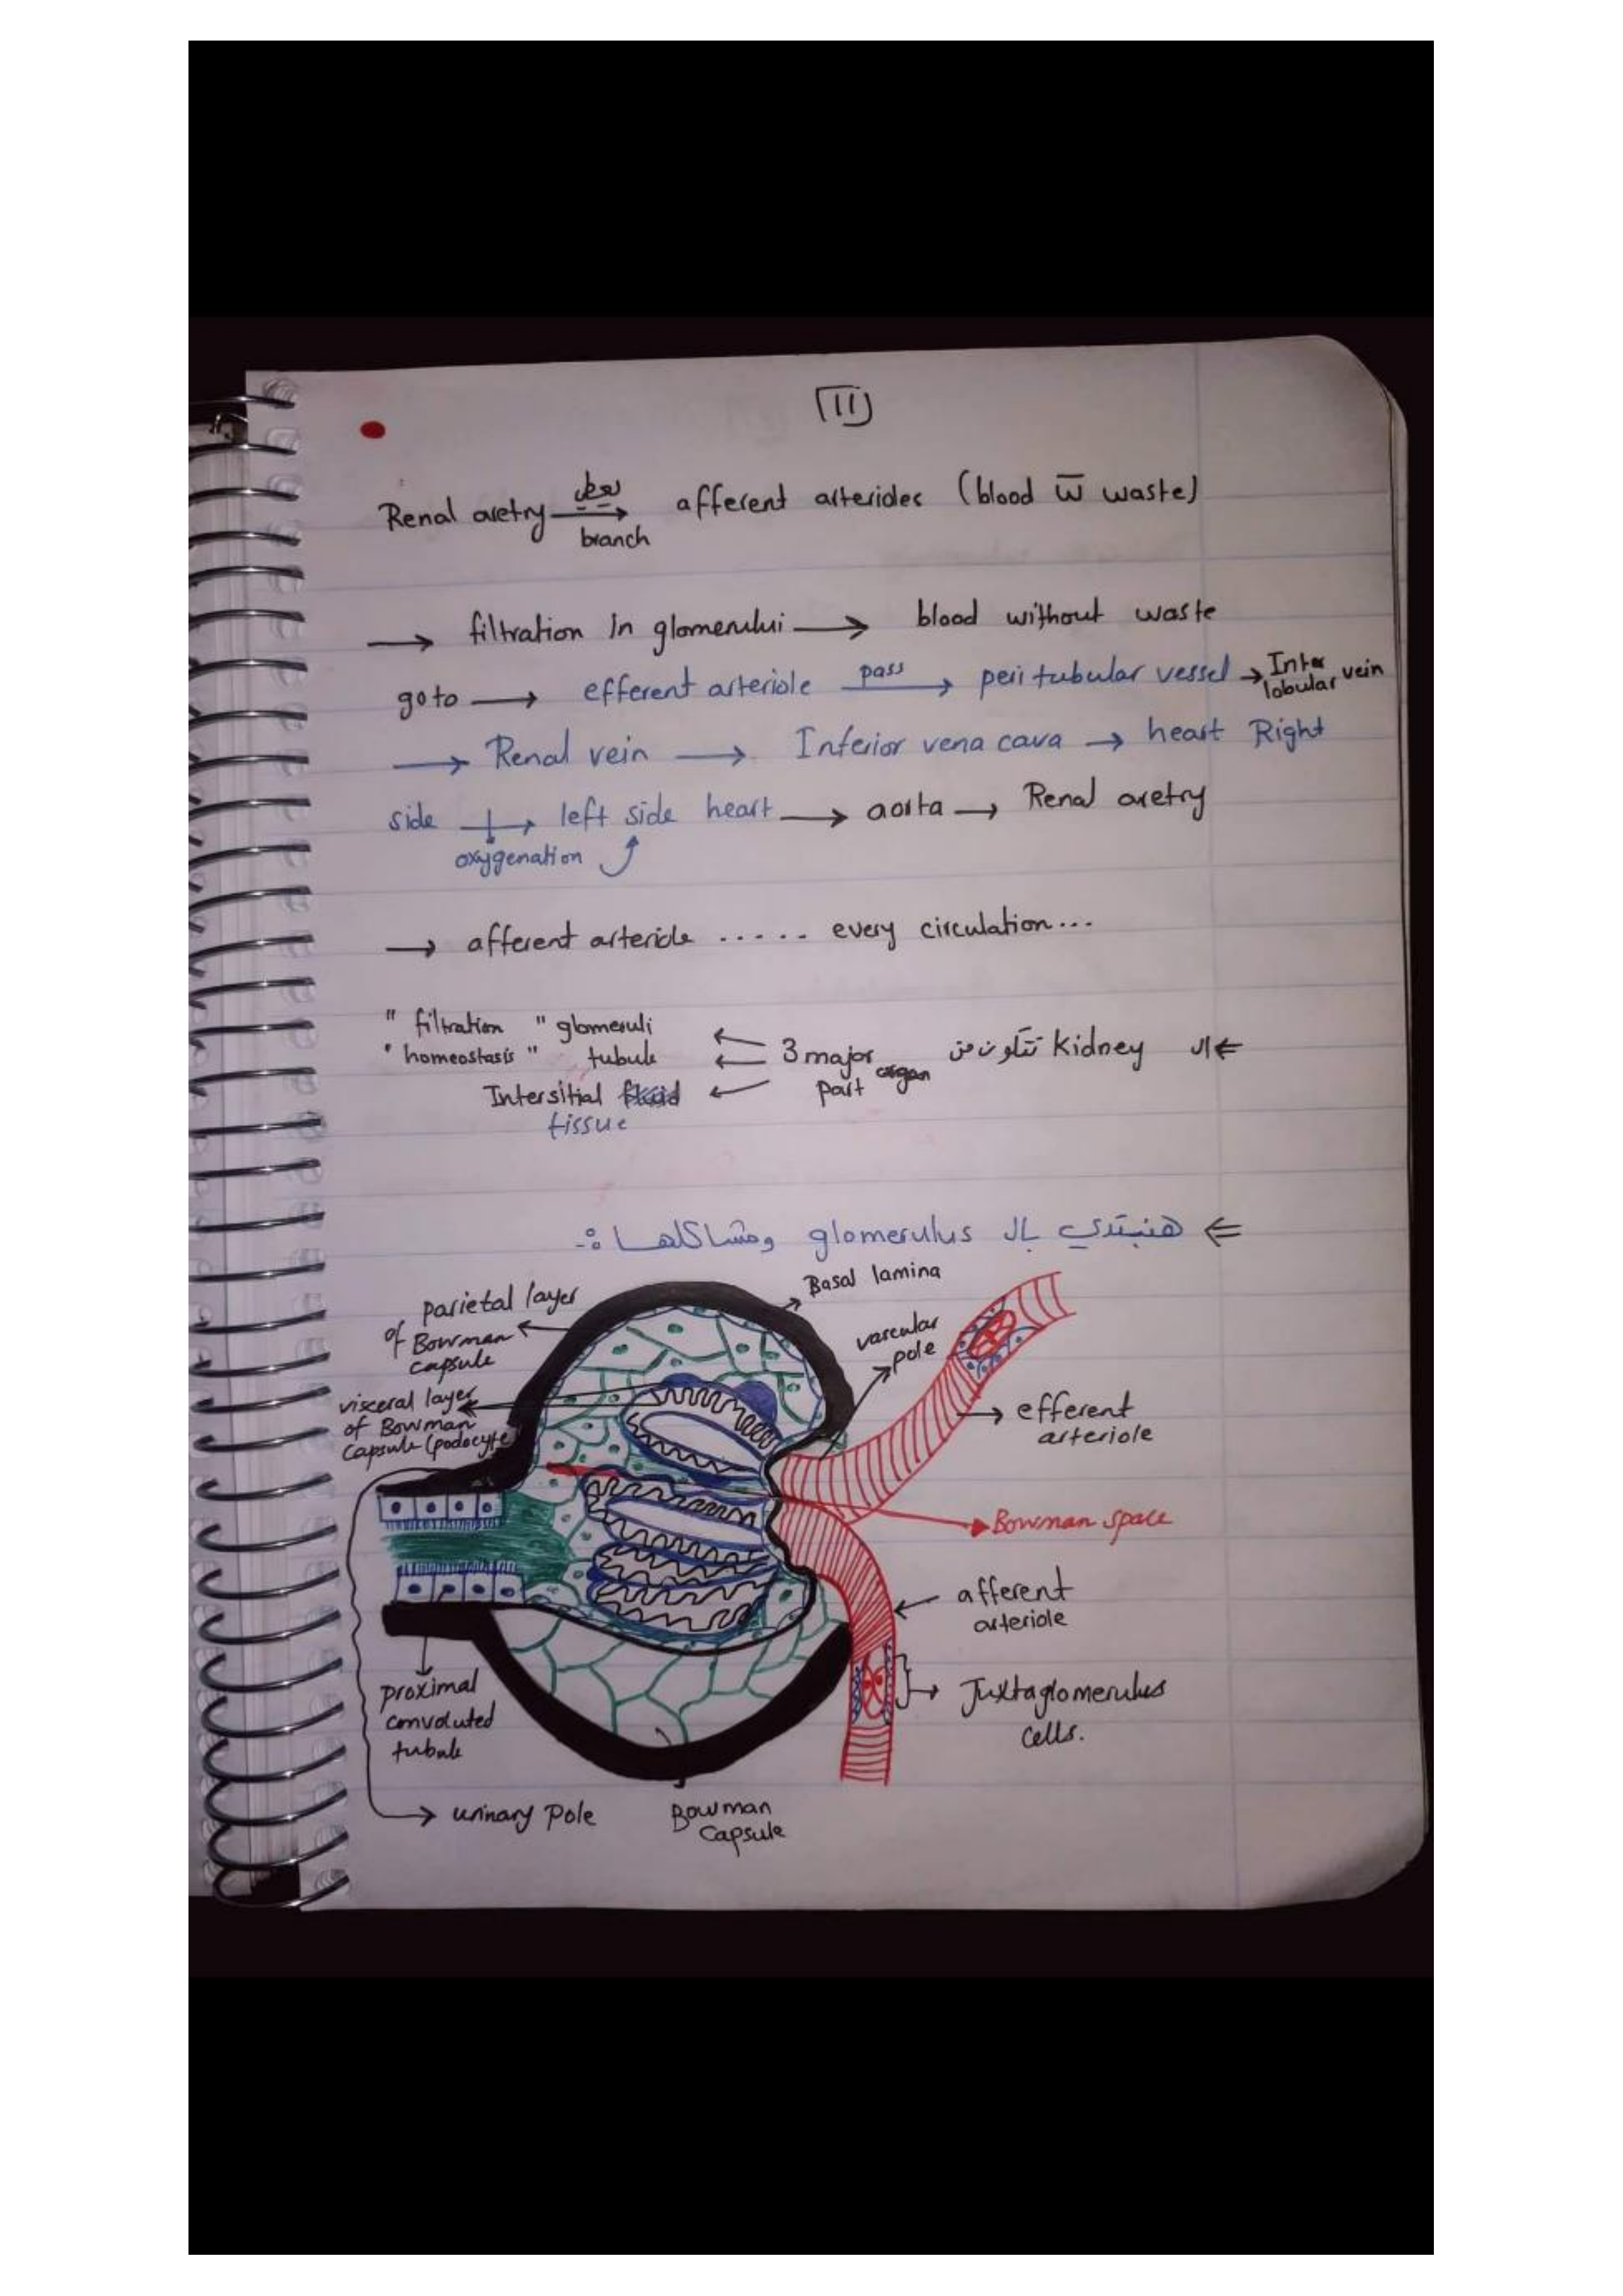 11
Renal aretry بعطي → afferent arterioles (blood w̅ waste)
branch
→ filtration in glomerului → blood without waste
go to → efferent arteriole pass → peri tubular vessel → Inter lobular vein
→ Renal vein → Inferior vena cava → heart Right
side → left side heart → aorta → Renal aretry
oxygenation
→ afferent arteriole ..... every circulation...
⇐ ال kidney تتكون من 3 major part
"filtration" glomeruli
"homeostasis" tubule
Intersitial tissue
⇐ هنبتدي بال glomerulus ومشاكلها :-
Basal lamina
parietal layer
of Bowman
capsule
vascular
pole
visceral layer
of Bowman
capsule (podocyte
efferent
arteriole
Bowman space
afferent
arteriole
proximal
convoluted
tubule
Juxtaglomerulus
cells.
urinary pole
Bowman
capsule